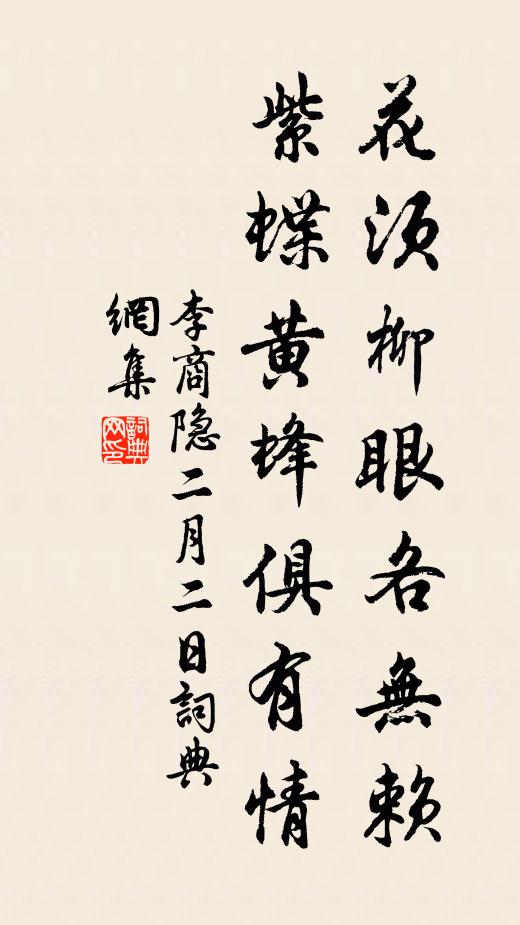 花须柳眼各無赖
紫蝶黄蜂俱有情
李商隐二月二日詞典
網集
詞典网印